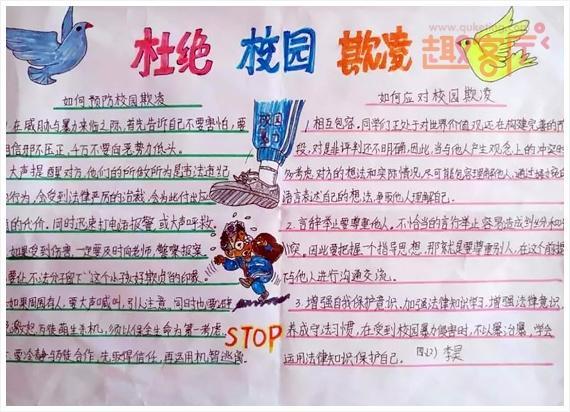 杜绝 校园 欺凌
www.qukeji
趣客
如何预防校园欺凌
在威胁与暴力来临之际,首先告诉自己不要害怕,要
信邪不压正,千万不要向恶势力低头。
大声提醒对方,他们的所做所为是违法违纪
行为,会受到法律严厉的治裁,会为此付出应
的代价。同时迅速打电话报警,或大声呼救
如果受到伤害,一定要及时向老师,警察报案
要让不法分子留下"这个小孩好欺负"的印象
如果周围有人,要大声喊叫,引人注意,同时也要
激起对准萌生杀机,须以保全生命为第一考虑。
要冷静与对准合作,先取得信任,再运用机智逃离
STOP
如何应对校园欺凌
1.相互包容。同学们正处于对世界价值观还在构建完善的阶
段,对是非评判还不明确,因此,当与他人产生观念上的冲突时
多考虑对方的想法和实际情况,尽可能包容理解他人,通过
语言表述自己的想法,争取他人理解自己。
2.言辞举止要尊重他人,不恰当的言行举止容易造成到分和
突。因此要把握一个指导思想,那就是要尊重别人,在这个前提
与他人进行沟通交流。
3.增强自我保护意识。加强法律知识学习,增强法律意识,
养成守法习惯,在受到校园暴力侵害时,不以暴治暴,学会
运用法律知识保护自己。 四(2) 李昊